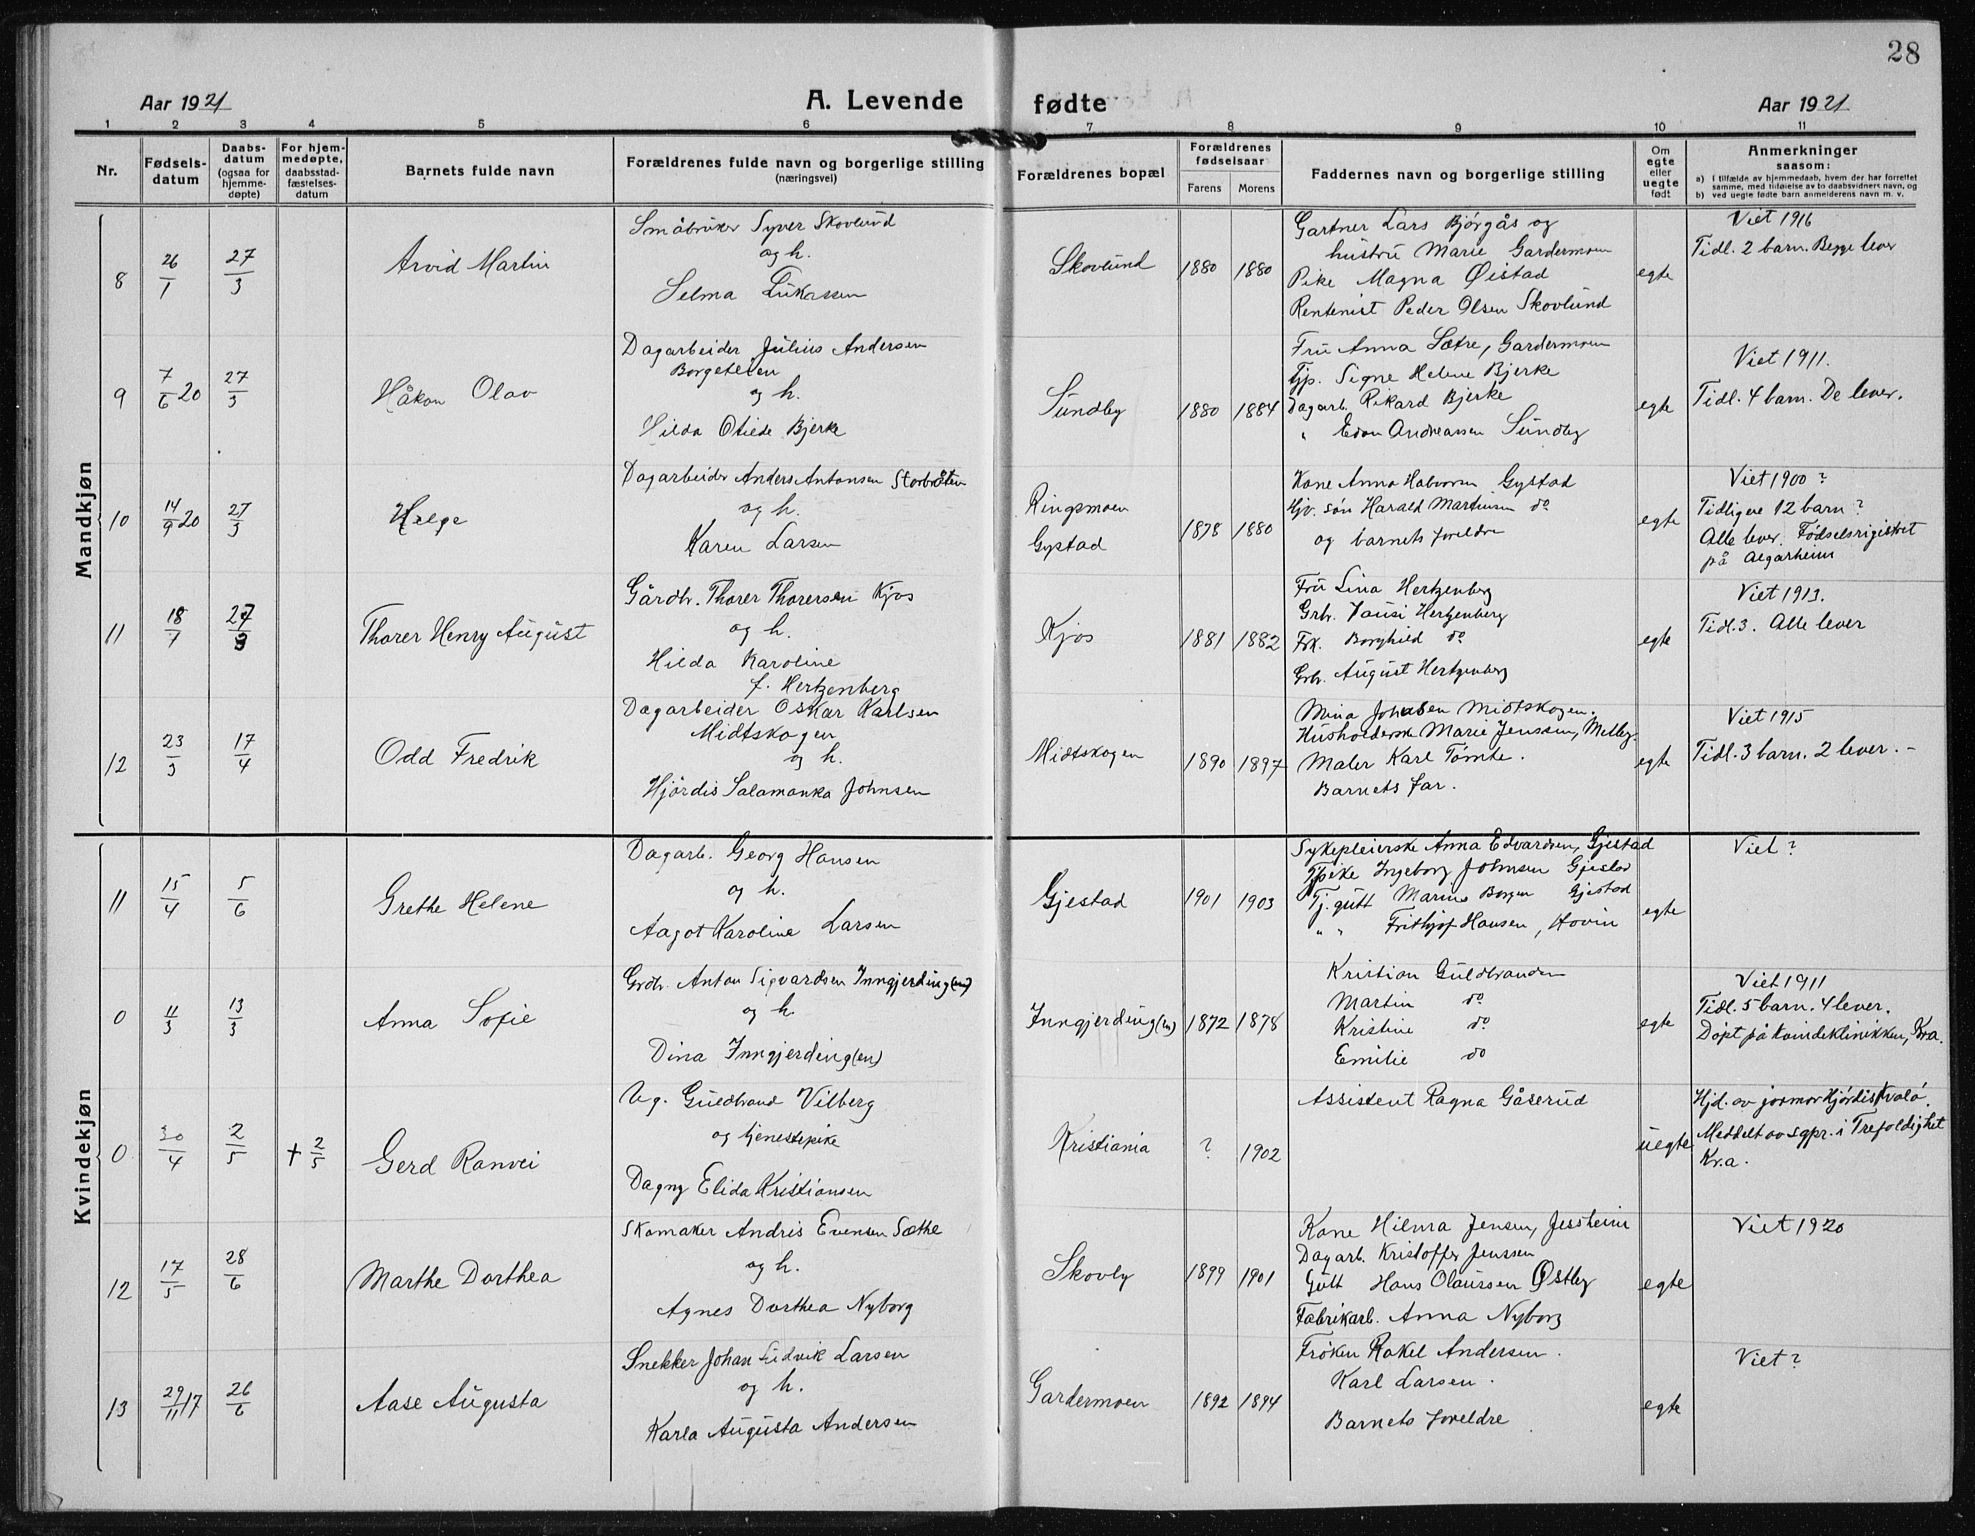 28
Aar 1921
A. Levende fødte
Aar 1921
1 2 3 4 5 6 7 8 9 10 11
Nr.
Fødsels-
datum
Daabs-
datum
(ogsaa for
hjemme-
døpte)
For hjem-
medøpte,
daabsstad-
fæstelses-
datum
Barnets fulde navn
Forældrenes fulde navn og borgerlige stilling
(næringsvei)
Forældrenes bopæl
Forældrenes
fødselsaar
Farens Morens
Faddernes navn og borgerlige stilling
Om
egte
eller
uegte
født
Anmerkninger
saasom:
a) I tilfælde av hjemmedaab, hvem der har forrettet
samme, med tilføielse av to daabsvidners navn, og
b) ved uegte fødte barn anmelderens navn m. v.
Mandkjøn
8 26/1 27/3 Arvid Martin
Småbruker Syver Skovlund
og h.
Selma Lukassen
Skovlund 1880 1880
Gartner Lars Bjørgås og
hustru Marie Gardermoen
Pike Magna Øistad
Rentenist Peder Olsen Skovlund
egte
Viet 1916
Tidl. 2 barn. Begge lever
9 7/6 20 27/3 Håkon Olav
Dagarbeider Julius Andersen
Borgeteien
og h.
Hilda Otilde Bjerke
Sundby 1880 1884
Fru Anna Sætre, Gardermoen
Tjp. Signe Helene Bjerke
Dagarb. Rikard Bjerke
" Edon Andreassen Sundby
egte
Viet 1911.
Tidl. 4 barn. De lever.
10 14/9 20 27/3 Helge
Dagarbeider Anders Antonsen Storbråten
og h.
Karen Larsen
Ringsmoen
Gystad
1878 1880
Kone Anna Halvorsen Gystad
Gjv. søn Harald Marthinsen do
og barnets foreldre
egte
Viet 1900 ?
Tidligere 12 barn ?
Alle lever. Fødselsrigistret
på Algarheim
11 18/7 27/3 Thorer Henry August
Gårdbr. Thorer Thorersen Kjos
og h.
Hilda Karoline
f. Hertzenberg
Kjos 1881 1882
Fru Lina Hertzenberg
Grb. Hertzenberg
Frk. Borghild do
Grb. August Hertzenberg
egte
Viet 1913.
Tidl. 3. Alle lever
12 23/3 17/4 Odd Fredrik
Dagarbeider Oskar Karlsen
Midtskogen
og h.
Hjørdis Salamonka Johnsen
Midtskogen 1890 1897
Mina Johnsen Midtskogen.
Husholderske Marie Jenssen, Melby.
Maler Karl Tømte.
Barnets far.
egte
Viet 1915
Tidl. 3 barn. 2 lever. -
Kvindekjøn
11 15/4 5/6 Grethe Helene
Dagarb. Georg Hansen
og h.
Aagot Karoline Larsen
Gjestad 1901 1903
Sykepleierske Anna Edvardsen, Gjestad
Tjpike Ingeborg Johnsen Gjestad
Tj.gutt Marius Borgen Gjestad
" " Frithjof Hansen, Hovin
egte
Viet ?
0 11/3 13/3 Anna Sofie
Grdb. Anton Sigvardsen Inngjerding(en)
og h.
Dina Inngjerding(en)
Inngjerding(en) 1872 1878
Kristian Guldbrandsen
Martin do
Kristine do
Emilie do
egte
Viet 1911
Tidl. 5 barn. 4 lever.
Døpt på Kvindeklinikken, Kr.a.
0 30/4 2/5 + 2/5 Gerd Ranvei
Ug. Guldbrand Vilberg
og tjenestepike
Dagny Elida Kristiansen
Kristiania ? 1902
Assistent Ragna Gåserud
uegte
Hjd. av jormor Hjørdis Kvalø.
Meddelt av sgpr. i Trefoldighet
Kr.a.
12 17/5 28/6 Marthe Dorthea
Skomaker Andris Evensen Sæthe
og h.
Agnes Dorthea Nyborg
Skovly 1899 1901
Kone Hilma Jensen, Jessheim
Dagarb. Kristoffer Jenssen
Gutt Hans Olaussen Østby
Fabrikarb. Anna Nyborg
egte
Viet 1920
13 29/11 17 26/6 Aase Augusta
Snekker Johan Ludvik Larsen
og h.
Karla Augusta Andersen
Gardermoen 1892 1894
Frøken Rakel Andersen.
Karl Larsen.
Barnets foreldre
egte
Viet ?